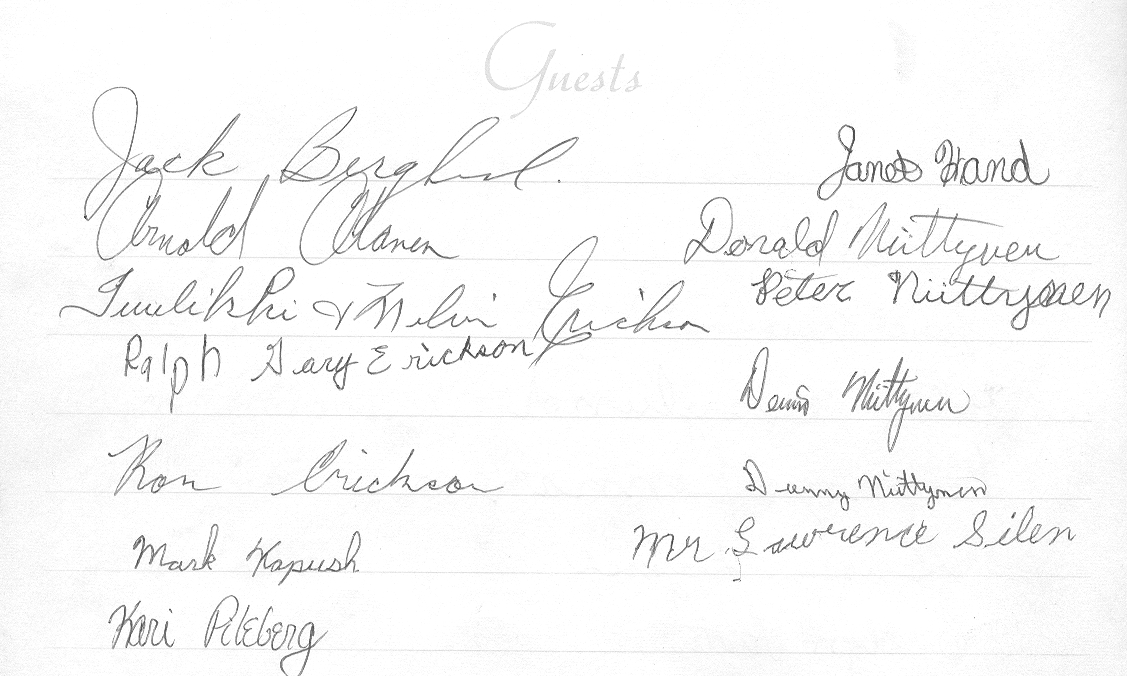 Guests
Jack Berglund.
Arnold Olanen
Tuulikki & Melvin Erickson
Ralph Gary Erickson
Ron Erickson
Mark Kapush
Kari Pileberg
Janet Hand
Donald Niittynen
Peter Niittynen
Dennis Niittynen
Danny Niittynen
Mr Lawrence Silen